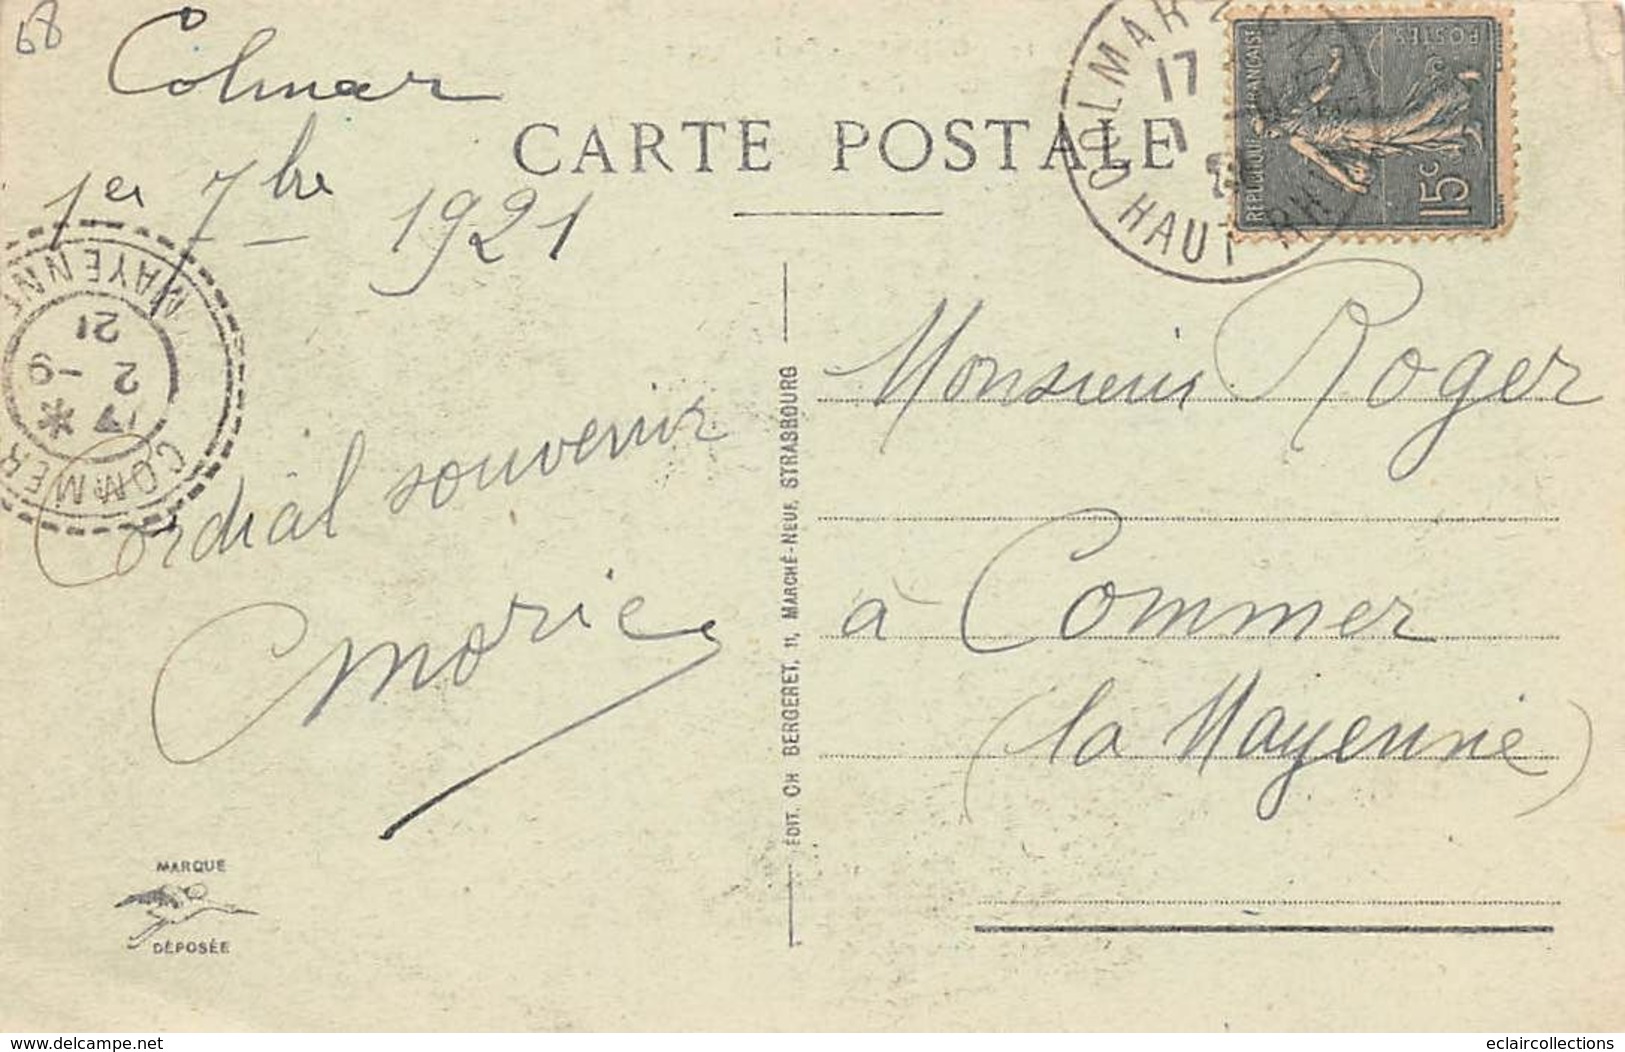 68
Colmar
1er 7bre 1921
CARTE POSTALE
COLMAR
17
HAUT RHIN
REPUBLIQUE FRANÇAISE
POSTES
15c
MAYENNE
21
2 -9
17
*
COMMER
Cordial souvenir
Monsieur Roger
à Commer
(la Mayenne)
ÉDIT. CH BERGERET, 11, MARCHÉ-NEUF, STRASBOURG
MARQUE
DÉPOSÉE
www.delcampe.net
eclaircollections